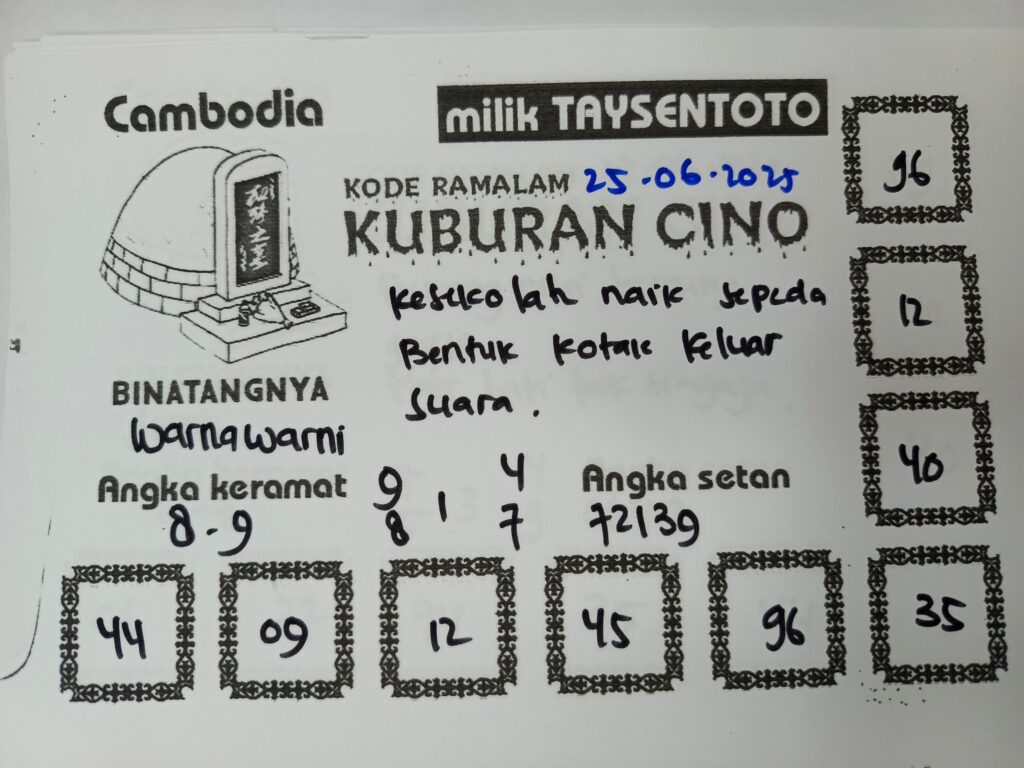 Cambodia
milik TAYSENTOTO
KODE RAMALAM 25.06.2025
KUBURAN CINO
Kesekolah naik sepeda
Bentuk kotak keluar
suara.
BINATANGNYA
warna warni
Angka keramat
8-9
9 4
1
8 7
Angka setan
72139
96
12
40
44 09 12 45 96 35